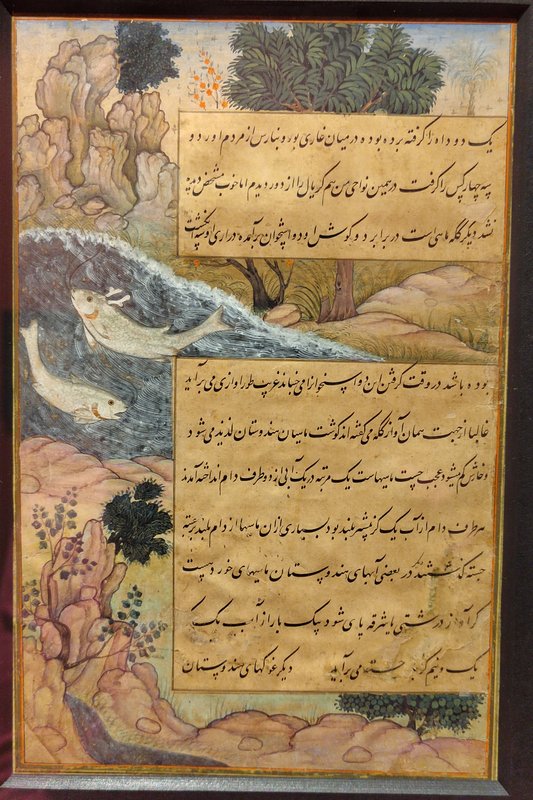 یک دو داه را گرفته برده بوده در میان غازی پور و بنارس از مردم اردو
سه چهار کس را گرفت در همین نواحی من هم گریال را از دور دیدم اما خوب مشخص دیده
نشد دیگر کله ماهی است در برابر دو گوش او دو استخوان برآمده درازی او سه انگشت
بوده باشد در وقت گرفتن این دو استخوان را می جنباند غریب طور آوازی می برآید
غالبا از جهت همان آواز کله می گفته اند گوشت ماهیان هندوستان لذیذ می شود
و خارش کم میشود عجب چست ماهیهاست یک مرتبه در یک آبی از دو طرف دام انداخته آمدند
هر طرف دام از آب یک گز بیشتر بلند بود بسیاری ازان ماهیها از دام بلندتر جسته
جسته گذشتند در بعضی آبهای هندوستان ماهیهای خورد هست
که آواز درشتی یا شرقه پای شود یک بار از آب یک
یک و نیم گز جسته می برآید دیگر غوکهای هندوستان